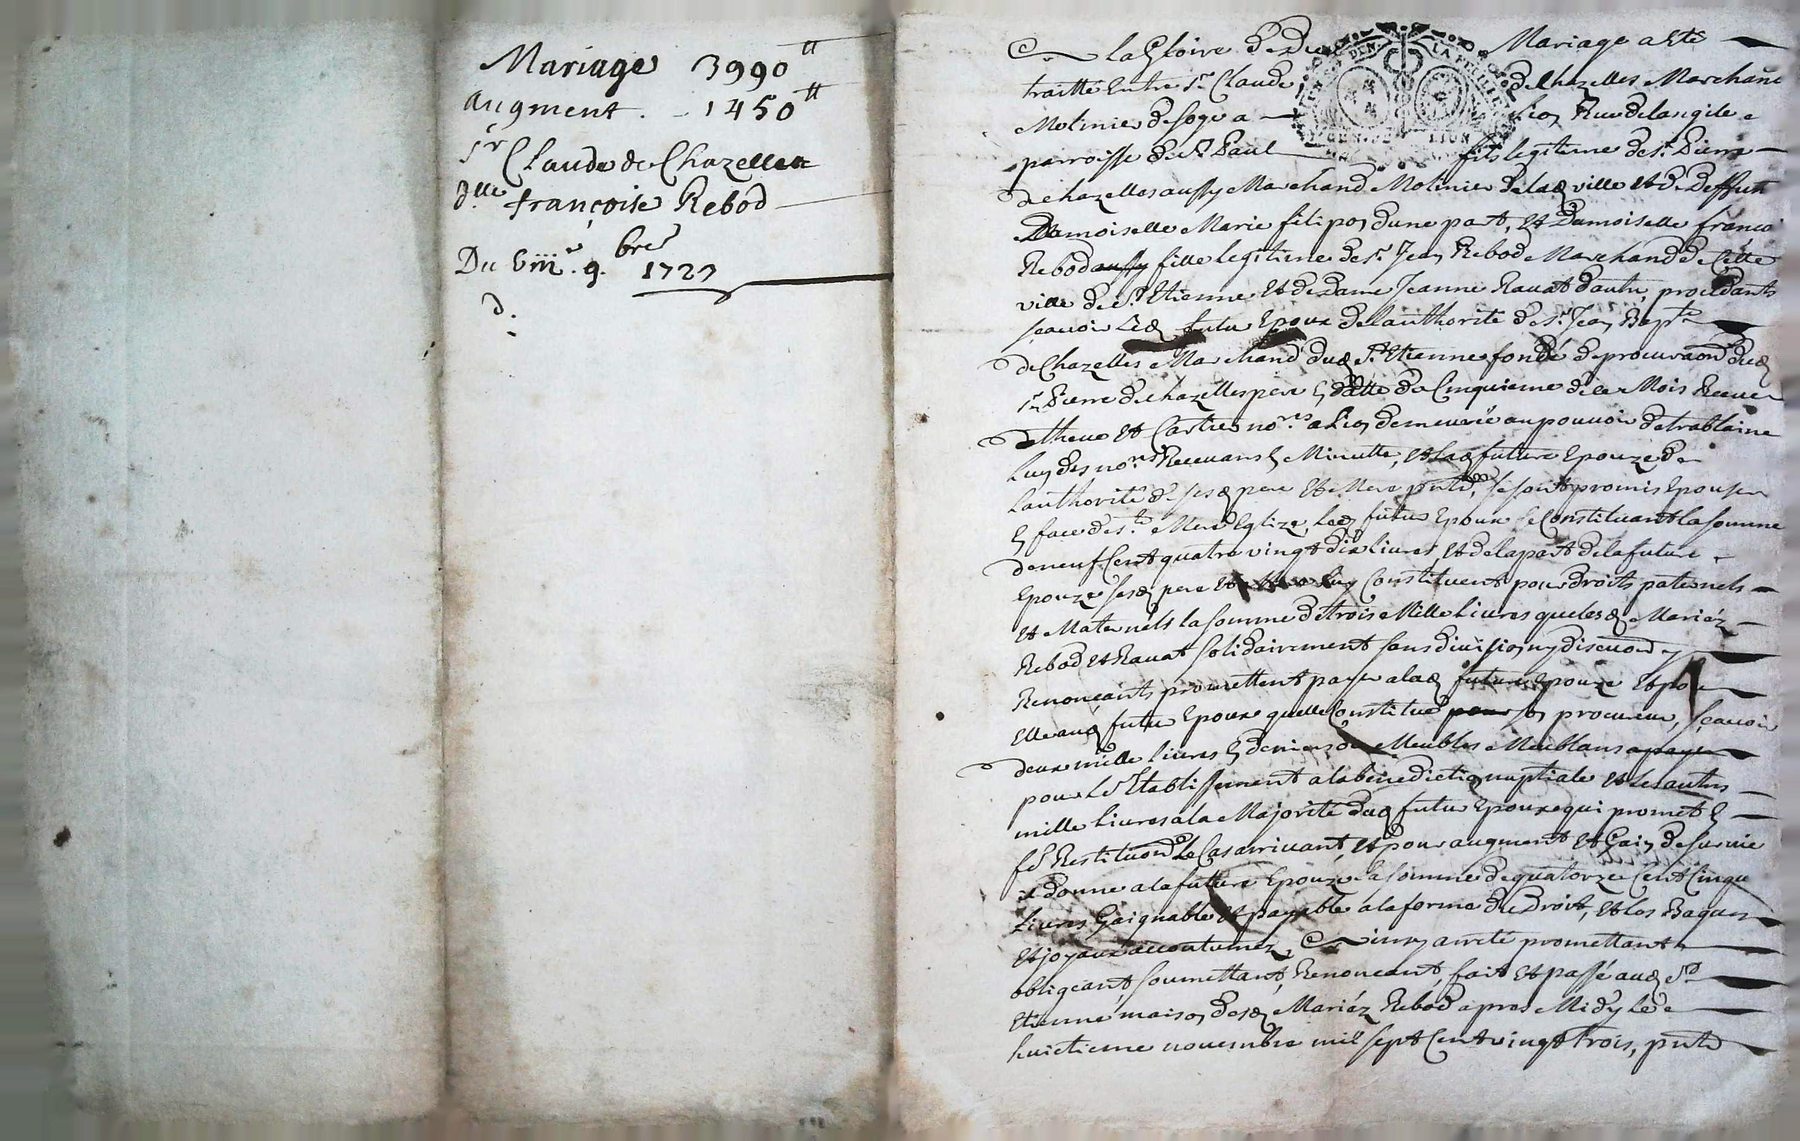 Mariage 3990 ₶
augment . - 1450 ₶
Sr Claude de Chazelles
Dlle françoise Rebod
Du viiie. 9. bre 1723
d.
A la Gloire de Dieu Mariage a Eté
traitté Entre Sr. Claude de Chazelles Marchand
Molinier de soye a Lion Rue
parroisse de St. Paul fils legitime de Sr. Pierre
de chazelles aussy Marchand Molinier de lad ville et de Deffunte
Damoiselle Marie filipon d'une part, et Damoiselle françoi
Rebod aussy fille legitime de Sr. Jean Rebod Marchand de Cette
ville de St. Etienne et de Dame Jeanne Ravat d'autre, procedants
sçavoir Led futur Epoux de l'authorité de Sr. Jean Bapte
de Chazelles Marchand dud St. Etienne fondé de procuraon dud
Sr. Pierre de chazelles pere En datte du Cinquieme de ce Mois Receue
et Cartier nores a Lion demeurée au pouvoir de
Luy des nores Recevans En Minutte, et lad future Epouze de
l'authorité de sesd pere et Mere pnts, se sont promis Epouser
En face de Ste Mere Eglize, Led futur Epoux se Constituant la somme
de neuf Cent quatre vingt dix livres et de la part de la future
Epouze sesd pere et Mere luy Constituent pour droits paternels
et Maternels la somme de trois Mille livres que lesd Mariéz
Rebod et Ravat solidairement sans division ny discuon y
Renonceants promettent payer a lad future Epouze Et pour
Elle aud futur Epoux quelle Constitue pour son procureur, sçavoir
deux mille livres En deniers ou Meubles Meublans a payer
pour L'Etablissement a la benediction nuptiale et les autres
mille livres a la Majorité dud futur Epoux qui promet En
fe Restituon Le Cas arrivant, et pour augment et Gain de survie
a donne a la future Epouze la somme de quatorze Cent Cinqu
livres Gaignable et payable a la forme du Droit, et les Bagues
et joyaux accoutumez, Ainsy arreté promettant
obligeant, soumettant, Renonceant, fait et passé aud St
Etienne maison desd Mariéz Rebod apres Midy le
huictieme novembre mil sept Cent vingt trois, pnts